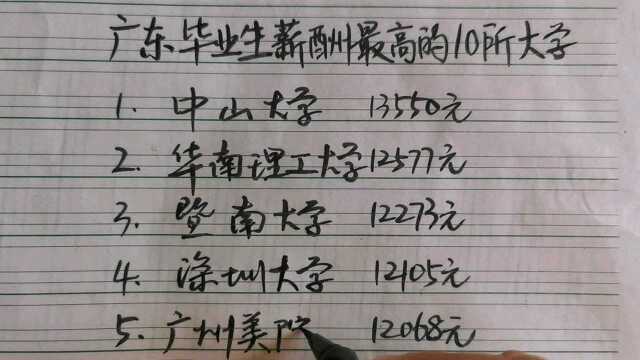 广东毕业生薪酬最高的10所大学
1. 中山大学 13550元
2. 华南理工大学12577元
3. 暨南大学 12273元
4. 深圳大学 12105元
5. 广州美院 12068元